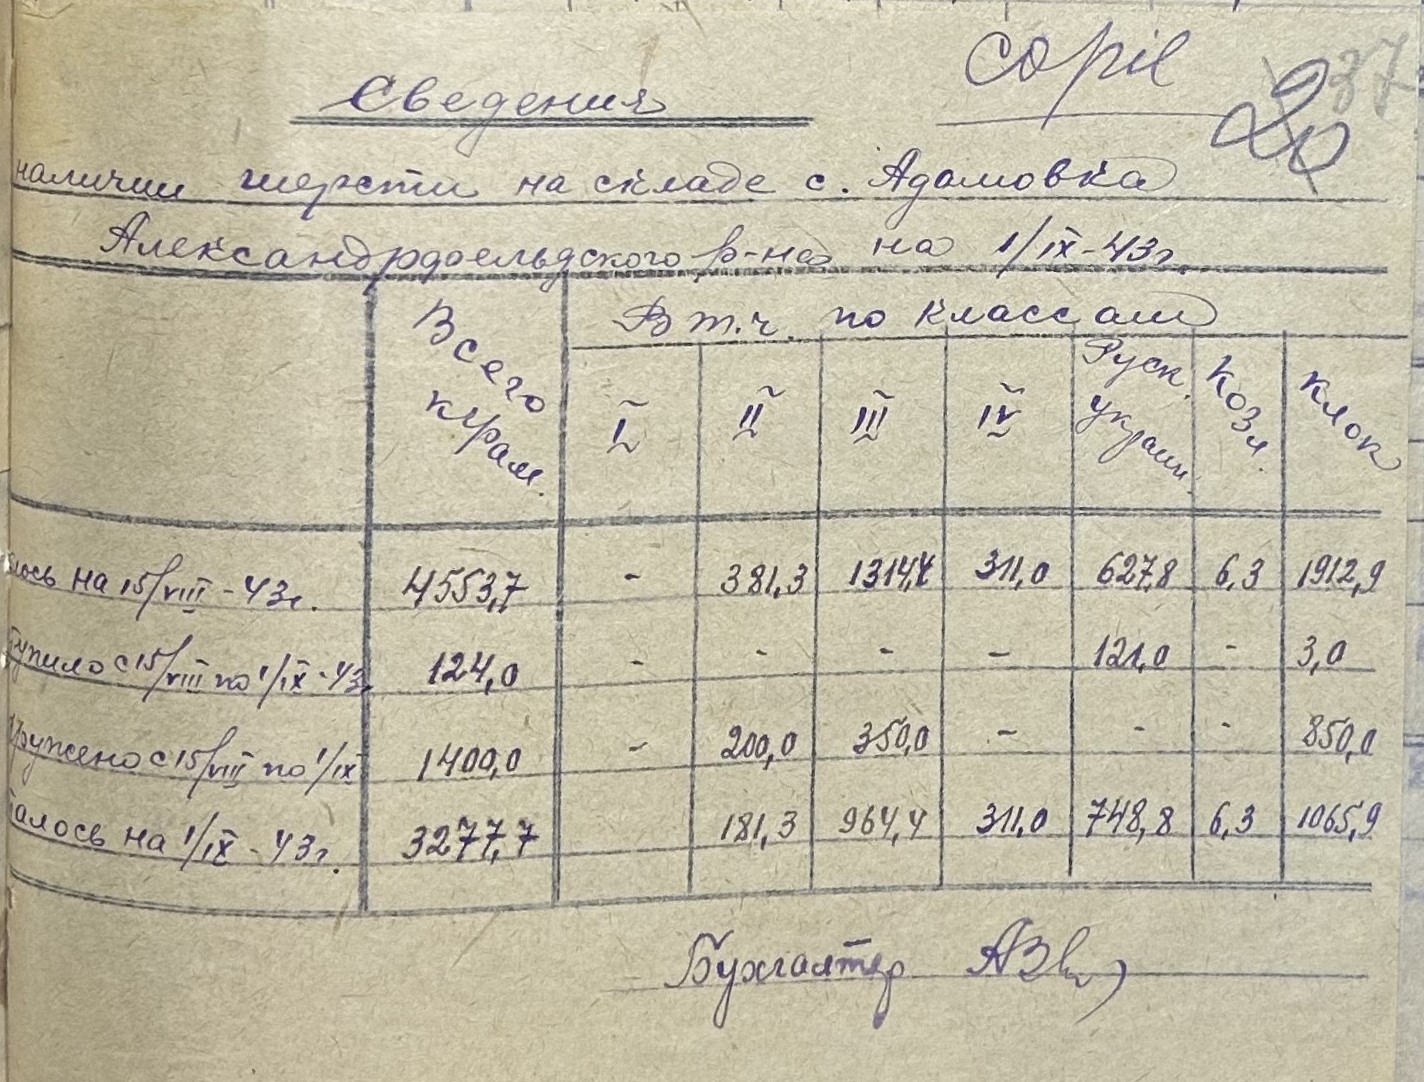 copil
20
37
Сведения
наличии шерсти на складе с. Адамовка
Александрдфельдского р-на на 1/IX-43г.
Всего кграм. В т.ч. по классам
I II III IV Руск. украин. Козл. клок
лось на 15/VIII-43г. 4553,7 - 381,3 1314,4 311,0 627,8 6,3 1912,9
тупило с 15/VIII по 1/IX-43 124,0 - - - - 121,0 - 3,0
гружено с 15/VIII по 1/IX 1400,0 - 200,0 350,0 - - - 850,0
талось на 1/IX-43г. 3277,7 181,3 964,4 311,0 748,8 6,3 1065,9
Бухгалтер